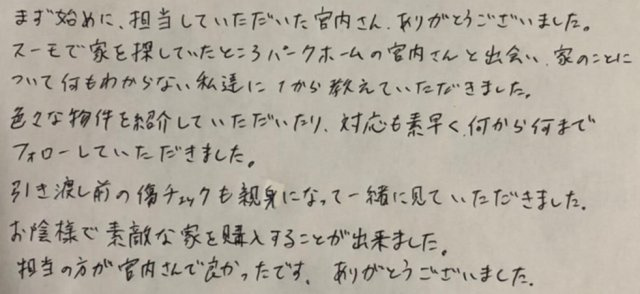 まず始めに、担当していただいた宮内さん、ありがとうございました。
スーモで家を探していたところパークホームの宮内さんと出会い、家のことに
ついて何もわからない私達に1から教えていただきました。
色々な物件を紹介していただいたり、対応も素早く、何から何まで
フォローしていただきました。
引き渡し前の傷チェックも親身になって一緒に見ていただきました。
お陰様で素敵な家を購入することが出来ました。
担当の方が宮内さんで良かったです。ありがとうございました。